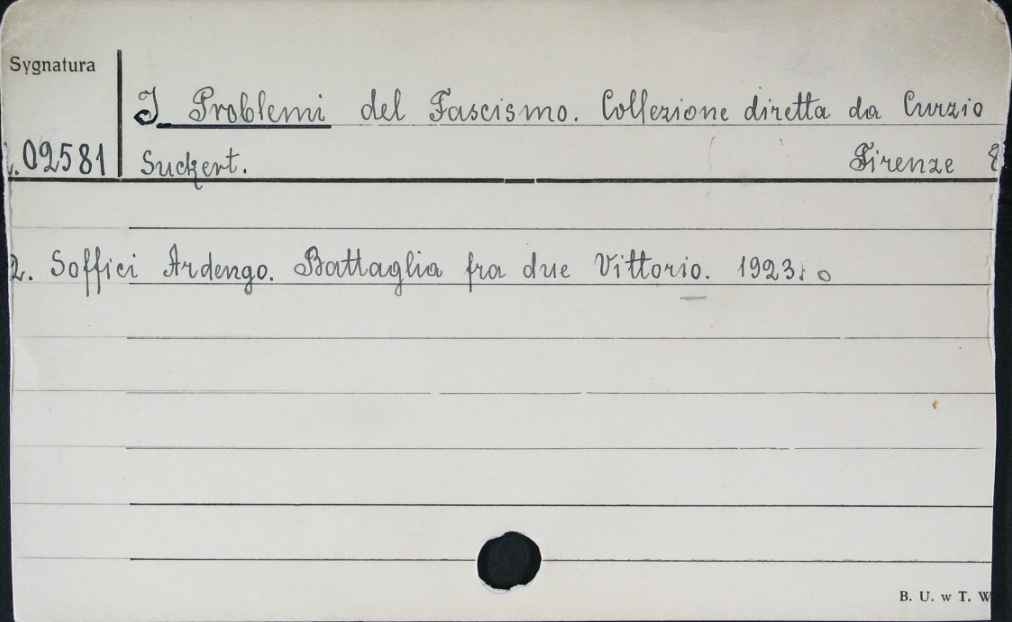 Sygnatura
I Problemi del Fascismo. Collezione diretta da Curzio
02581 Suckert. Firenze
2. Soffici Ardengo. Battaglia fra due Vittorio. 1923.
B. U. w T. W